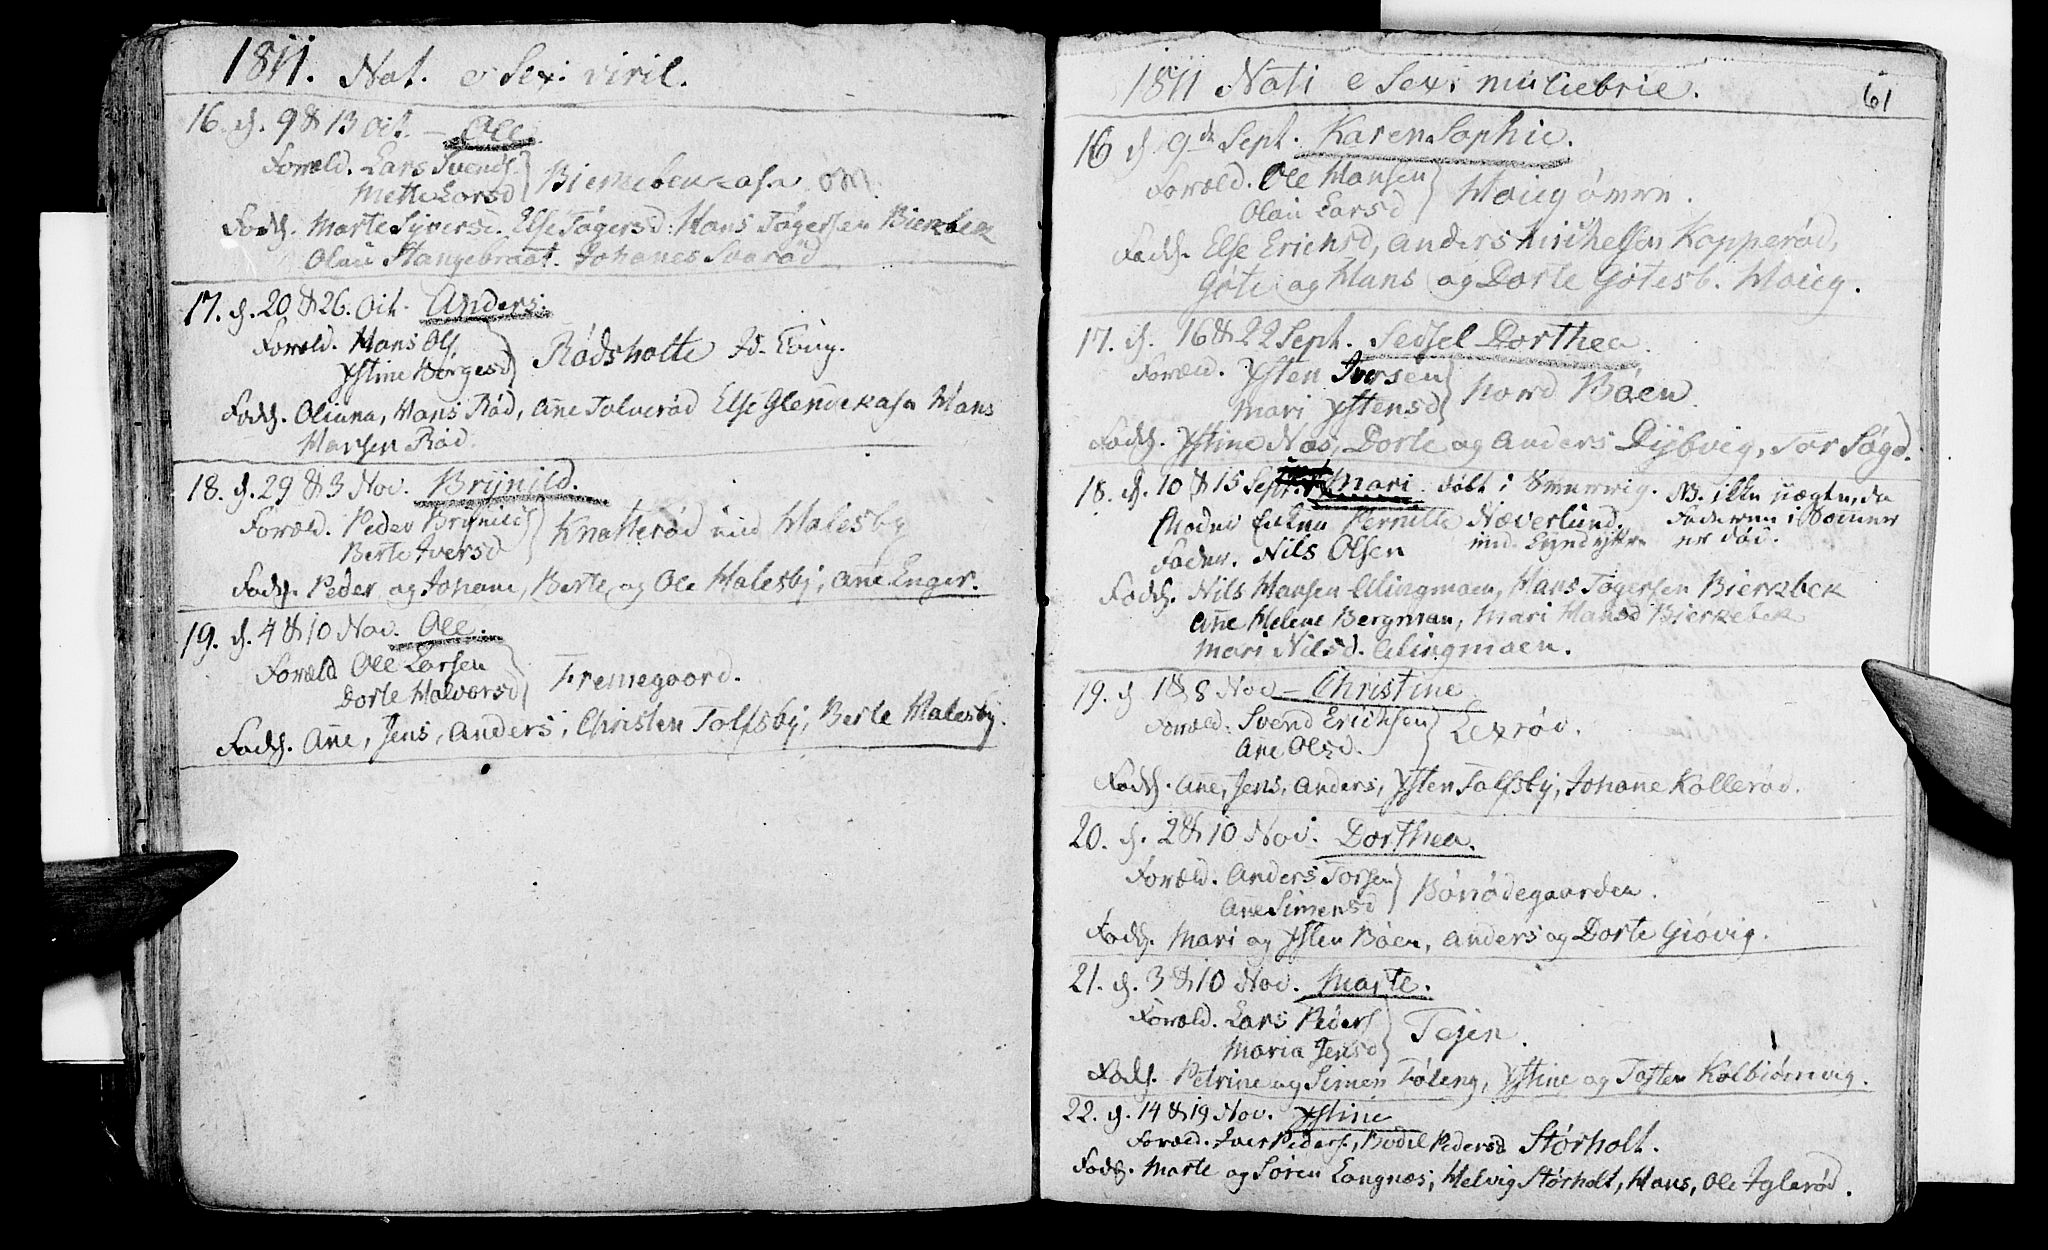 1811. Nat. e Sex: viril.
16. d. 9 & 13 Oct. — Ole.
Foræld. Lars Svends.
Mette Larsd
Fadd. Marte Syversd. Else Tøgersd: Hans Tøgersen Bierkebek
Olau Stangebraat. Johanes Svarød
17. d. 20 & 26. Oct. Anders.
Foræld. Hans Ols.
Ystine Borgesd Rødsholte
Fadd. Oliana, Hans Rød, Añe Tolverød Else Glendekasa Hans
Hansen Rød.
18. d. 29 & 3 Nov. Brynild.
Foræld. Peder Brynilds
Berte Iversd Knatterød ued Halesby
Fadd. Peder og Johane, Berte og Ole Halesby, Añe Enger.
19. d. 4 & 10 Nov. Ole.
Foræld Ole Larsen
Dorte Halvorsd Fremegaard.
Fadd. Añe, Jens, Anders, Christen Tolfsby, Berte Halesby.
1811 Nati e Sex: muliebrie. 61
16 d. 9de Sept. Karen Sophie.
Foræld. Ole Hansen
Olau Larsd
Fadd. Else Erichsd, Anders Michelsen Kopperød,
Gøte og Hans og Dorte Gøtesb. Houeg.
17. d. 16 & 22 Sept. Sedsel Dorthea.
Foræld. Ysten Iversen
Mari Ystensd Nord Boen
Fadd. Ystine Nøs, Dorte og Anders Dybvig, Tor Søgd.
18. d. 10 & 15 Sept. Mari født i NB. ikke nægtes, da
Moder Enken Pernille Næverlund. Faderen i Sommer
Fader. Nils Olsen er død.
Fadd. Nils Hansen Elingmoen, Hans Tøgersen Bierkebek
Añe Helene Bergman, Mari Hansd Bierkebek
Mari Nilsd. Elingmoen.
19. d 1 & 8 Nov — Christine
Foræld: Svend Erichsen
Ane Olsd. Lexrød.
Fadd. Añe, Jens, Anders, Ysten Tolfsby, Johañe Kollerød.
20. d. 2 & 10 Nov. Dorthea.
Foræld. Anders Torsen
Ane Simensd Bønødegaarden.
Fadd. Mari og Ysten Boen, Anders og Dorte Giøvig.
21. d. 3 & 10 Nov. Marte.
Foræld. Lars Peders
Maria Jensd Tejen.
Fadd. Petrine og Simen Tøleng, Ystine og Tosten Kolbiørnvig.
22. d. 14 & 19 Nov. Ystine
Foræld. Iver Peders., Bodil Pedersd Størholt.
Fadd. Marte og Søren Langnøs, Helvig Størholt, Hans, Ole Iglerød.